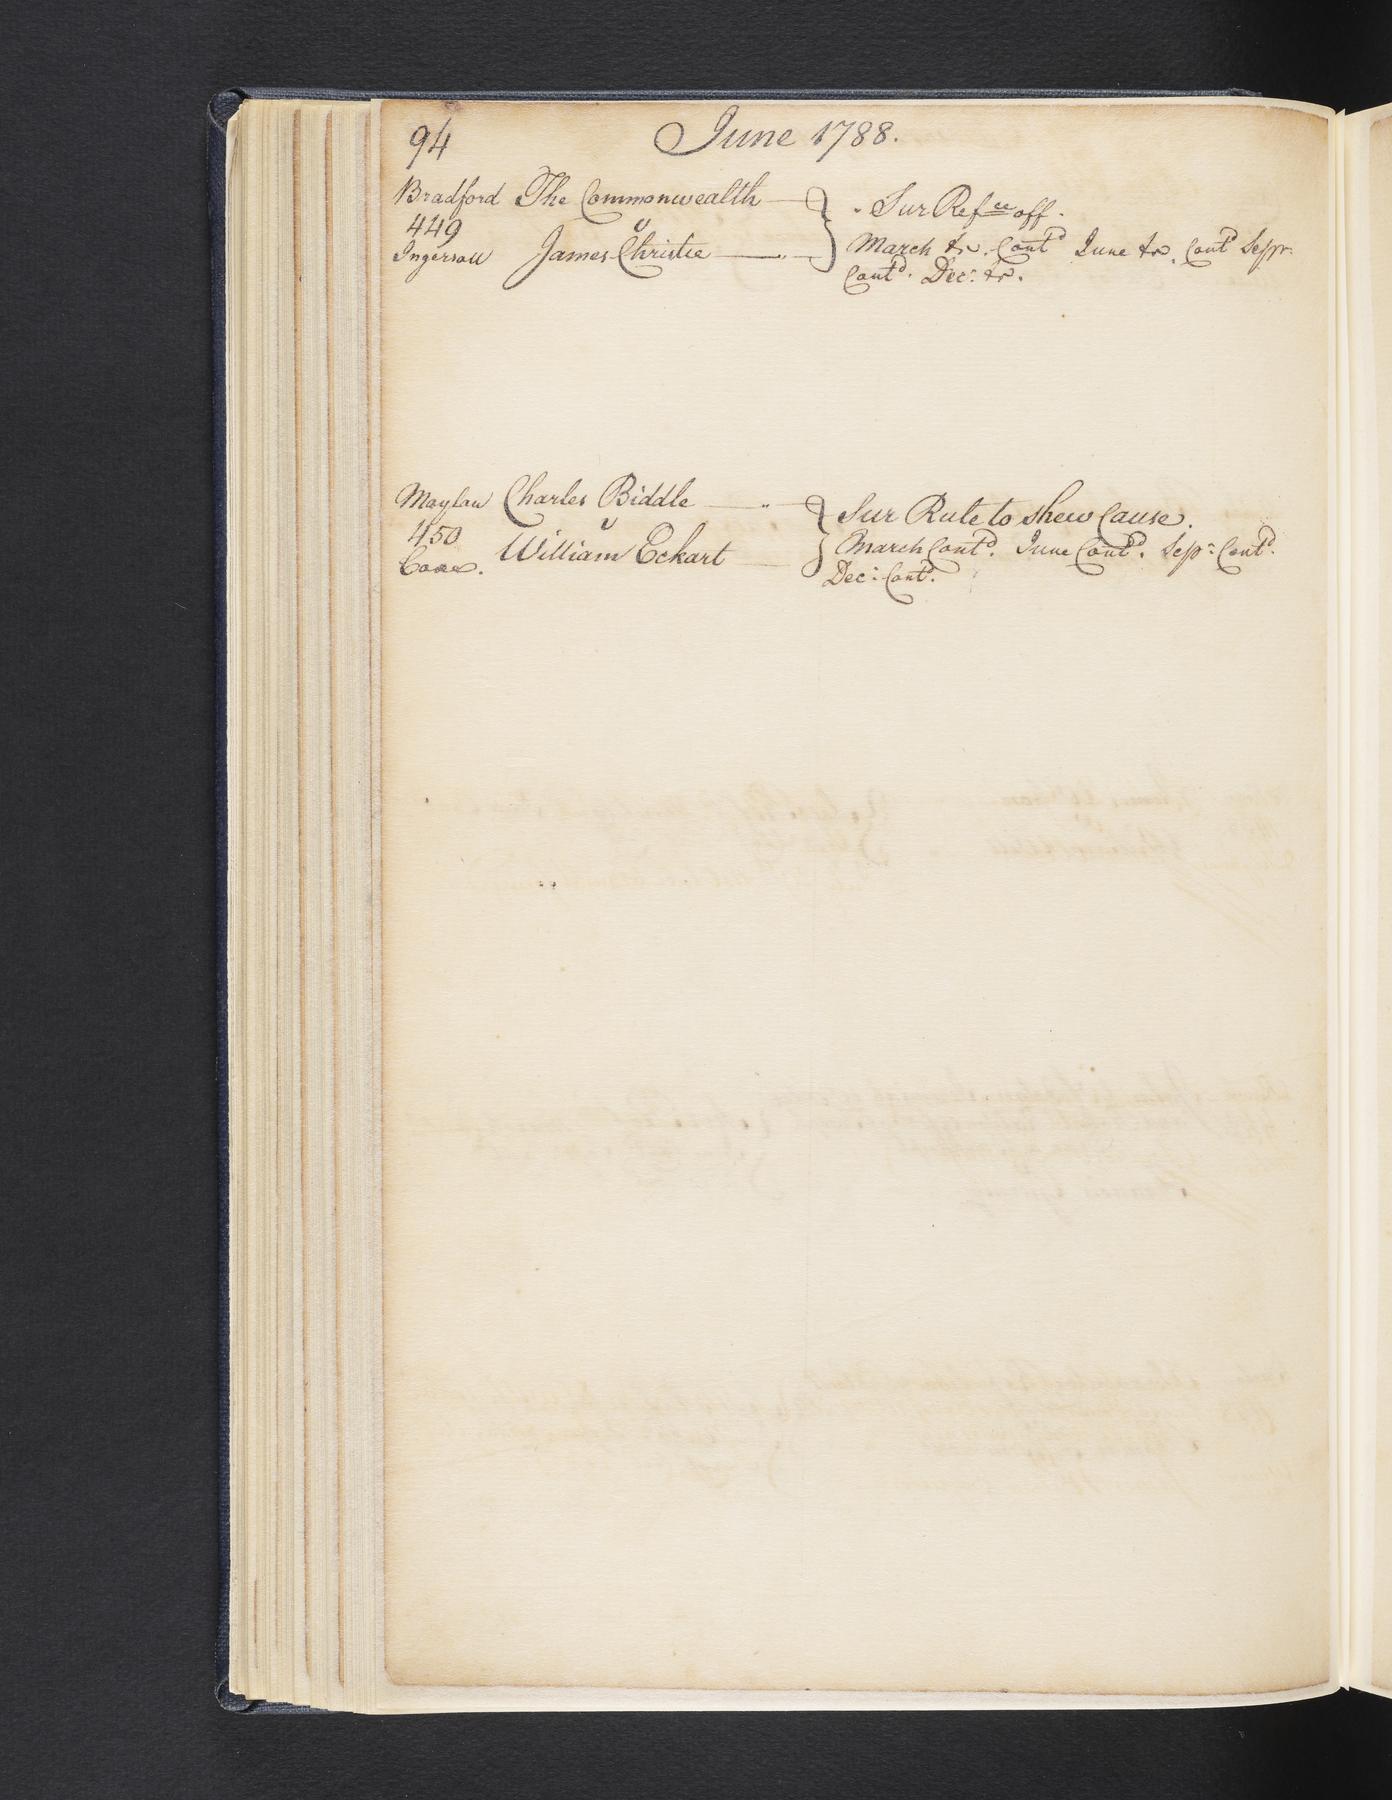 94 June 1788.
Bradford The Commonwealth } Sur Ref.ee off.
449 v
Ingersoll James Christie March tr. Contd June tr. Contd Sepr.
Contd. Decr. tr.
Moylan Charles Biddle } Sur Rule to shew Cause.
450 v
Coxe. William Eckart March Contd. June Contd. Sepr. Contd.
Decr. Contd.